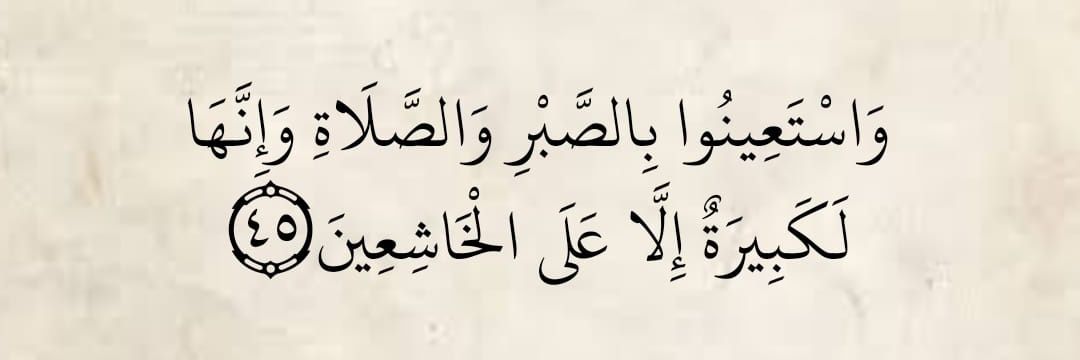 وَاسْتَعِينُوا بِالصَّبْرِ وَالصَّلَاةِ وَإِنَّهَا
لَكَبِيرَةٌ إِلَّا عَلَى الْخَاشِعِينَ ٤٥